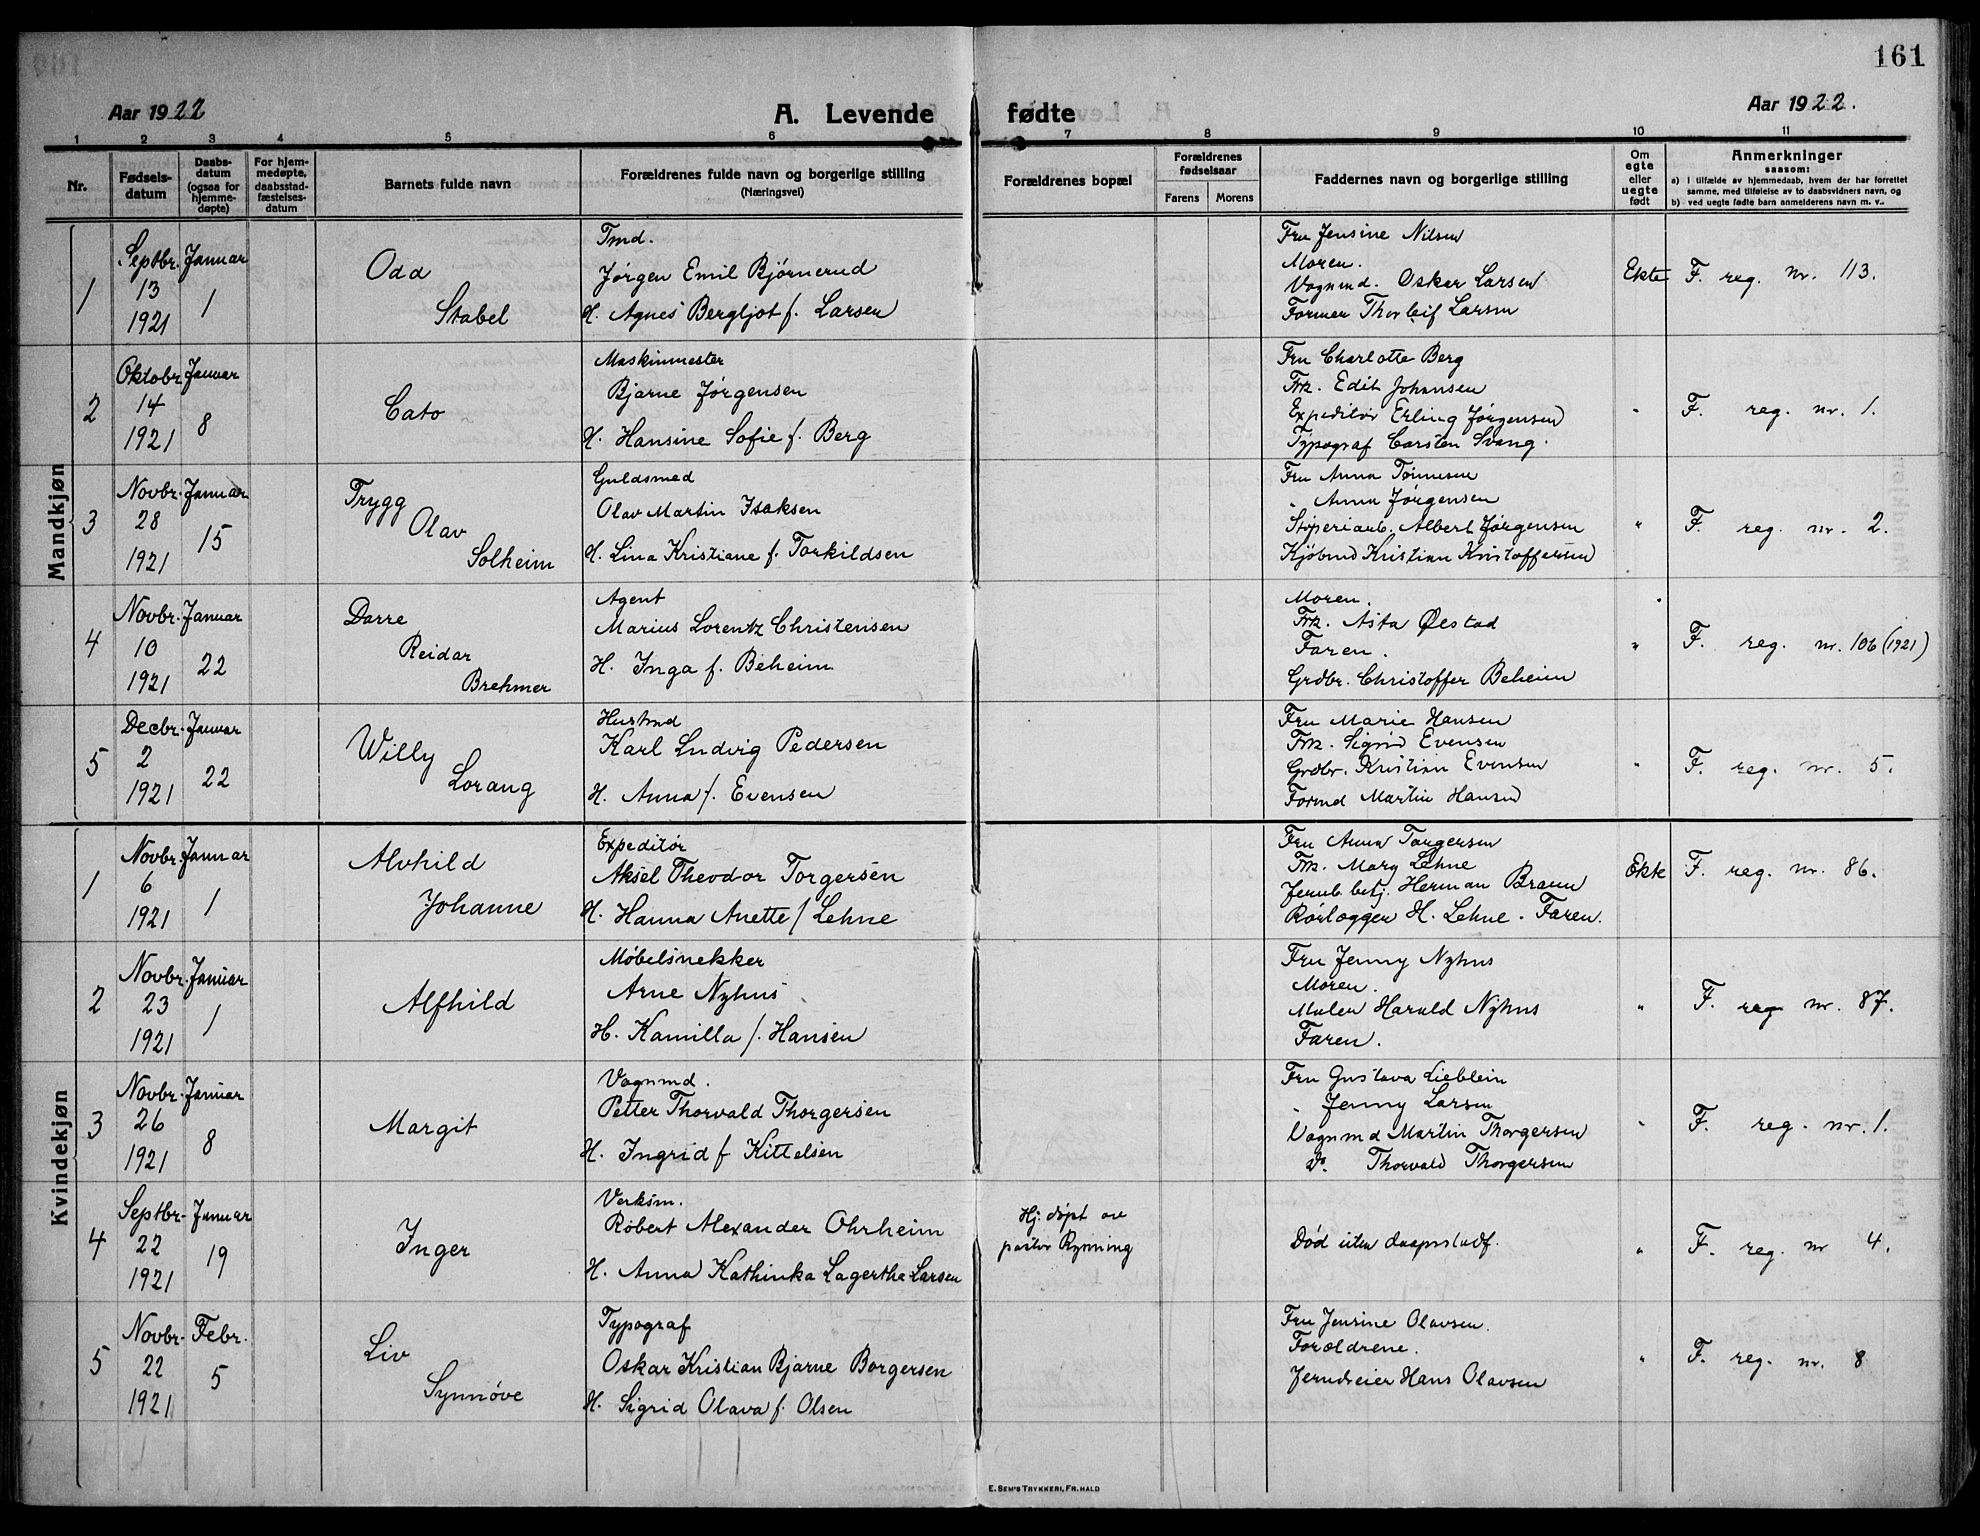 161
Aar 1922
A. Levende fødte
Aar 1922.
1 2 3 4 5 6 7 8 9 10 11
Nr.
Fødsels-
datum
Daabs-
datum
(ogsaa for
hjemme-
døpte)
For hjem-
medøpte,
daabsstad-
fæstelses-
datum
Barnets fulde navn
Forældrenes fulde navn og borgerlige stilling
(Næringsvei)
Forældrenes bopæl
Forældrenes
fødselsaar
Farens Morens
Faddernes navn og borgerlige stilling
Om
egte
eller
uegte
født
Anmerkninger
saasom:
a) I tilfælde av hjemmedaab, hvem der har forrettet
samme, med tilføielse av to daabsvidners navn, og
b) ved uegte fødte barn anmelderens navn m. v..
Mandkjøn
1
Septbr.
13
1921
Januar
1
Odd
Stabel
Tmd.
Jørgen Emil Bjørnerud
H. Agnes Bergljot f. Larsen
Fru Jensine Nilsen
Moren.
Vognmd. Oskar Larsen
Former Thorleif Larsen
Ekte
F. reg. nr. 113.
2
Oktobr.
14
1921
Januar
8
Cato
Maskinmester
Bjarne Jørgensen
H. Hansine Sofie f. Berg
Fru Charlotte Berg
Frk. Edit Johansen
Expeditør Erling Jørgensen
Typograf Carsten Svang.
"
F. reg. nr. 1.
3
Novbr.
28
1921
Januar
15
Trygg
Olav
Solheim
Guldsmed
Olav Martin Isaksen
H. Lina Kristiane f. Torkildsen
Fru Anna Tønnesen
" Anna Jørgensen
Støperiarb. Albert Jørgensen
Kjøbmd Kristian Kristoffersen
"
F. reg. nr. 2.
4
Novbr.
10
1921
Januar
22
Darre
Reidar
Brehmer
Agent
Marius Lorentz Christensen
H. Inga f. Beheim
Moren.
Frk. Asta Øestad
Faren.
Grdbr. Christoffer Beheim
"
F. reg. nr. 106 (1921)
5
Decbr.
2
1921
Januar
22
Willy
Lorang
Hustmd
Karl Ludvig Pedersen
H. Anna f. Evensen
Fru Marie Hansen
Frk. Sigrid Evensen
Grdbr. Kristian Evensen
Formd Martin Hansen
"
F. reg. nr. 5.
Kvindekjøn
1
Novbr.
6
1921
Januar
1
Alvhild
Johanne
Expeditør
Aksel Theodor Torgersen
H. Hanna Anette f Lehne
Fru Anna Torgersen
Frk. Mary Lehne
Jernb. betj. Herman Braun
Rørlægger H. Lehne. Faren.
Ekte
F. reg. nr. 86.
2
Novbr.
23
1921
Januar
1
Alfhild
Møbelsnekker
Arne Nyhus
H. Kamilla f. Hansen
Fru Jenny Nyhus
Moren.
Maler Harald Nyhus
Faren.
"
F. reg nr. 87.
3
Novbr.
26
1921
Januar
8
Margit
Vognmd.
Petter Thorvald Thorgersen
H. Ingrid f Kittelsen
Fru Gustava Lieblein
" Jenny Larsen
Vognmd Martin Thorgersen
Do Thorvald Thorgersen
"
F. reg. nr. 1.
4
Septbr.
22
1921
Januar
19
Inger
Verksm.
Robert Alexander Ohrheim
H. Anna Kathinka Lagertha Larsen
Hj. døpt av
pastor Rynning
Død uten daapsstadf.
"
F. reg. nr 4.
5
Novbr.
22
1921
Febr.
5
Liv
Synnøve
Typograf
Oskar Kristian Bjarne Borgersen
H. Sigrid Olava f. Olsen
Fru Jensine Olavsen.
Forældrene.
Jerndreier Hans Olavsen
"
F. reg. nr. 8
E. SEM'S TRYKKERI, FR.HALD